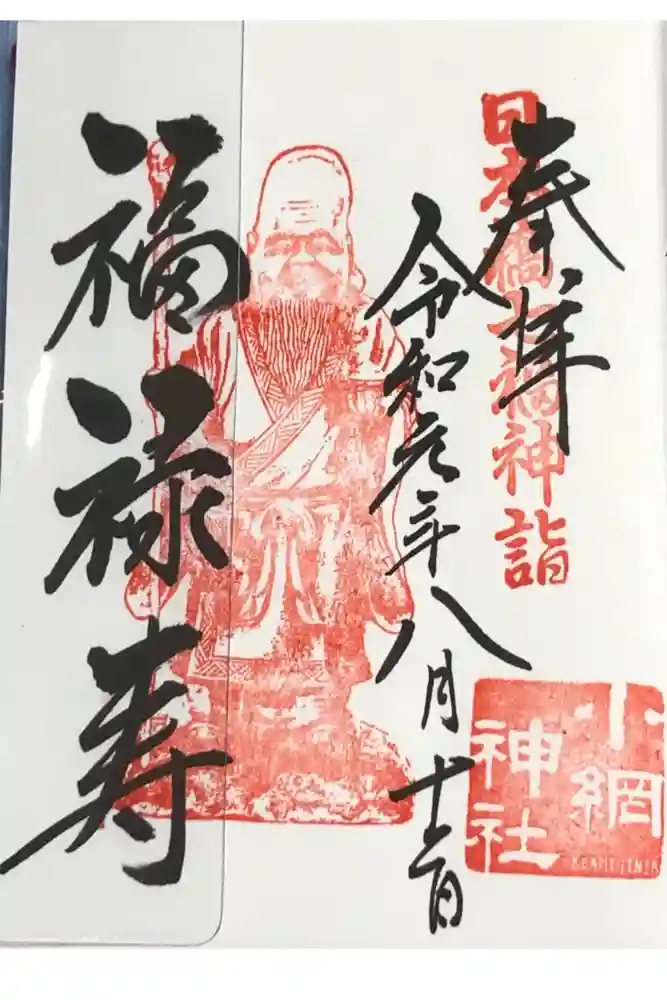 奉拝
日本橋七福神詣
令和元年八月十二日
福禄寿
小網
神社
KOAMIJINJA